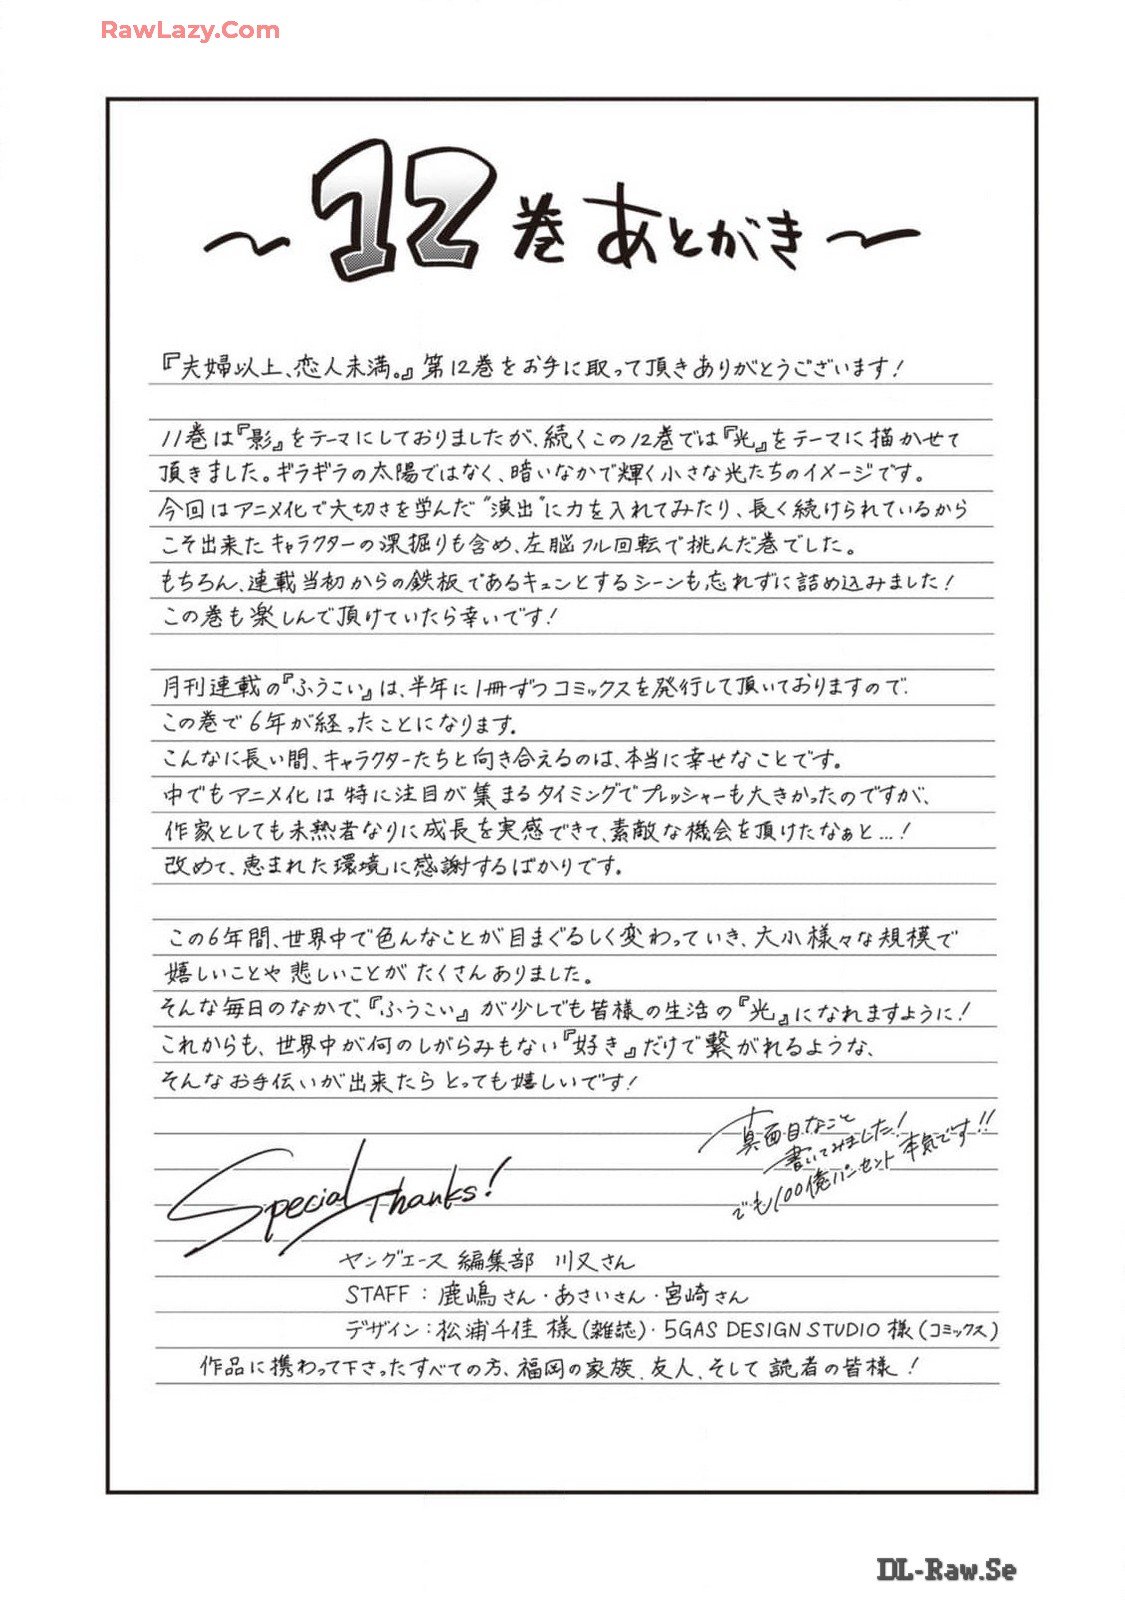 RawLazy.Com
〜12巻 あとがき〜
『夫婦以上、恋人未満。』第12巻をお手に取って頂きありがとうございます!
11巻は『影』をテーマにしておりましたが、続くこの12巻では『光』をテーマに描かせて
頂きました。ギラギラの太陽ではなく、暗いなかで輝く小さな光たちのイメージです。
今回はアニメ化で大切さを学んだ“演出”に力を入れてみたり、長く続けられているから
こそ出来たキャラクターの深掘りも含め、左脳フル回転で挑んだ巻でした。
もちろん、連載当初からの鉄板であるキュンとするシーンも忘れずに詰め込みました!
この巻も楽しんで頂けていたら幸いです!
月刊連載の『ふうこい』は、半年に1冊ずつコミックスを発行して頂いておりますので、
この巻で6年が経ったことになります。
こんなに長い間、キャラクターたちと向き合えるのは、本当に幸せなことです。
中でもアニメ化は特に注目が集まるタイミングでプレッシャーも大きかったのですが、
作家としても未熟者なりに成長を実感できて、素敵な機会を頂けたなぁと…!
改めて、恵まれた環境に感謝するばかりです。
この6年間、世界中で色んなことが目まぐるしく変わっていき、大小様々な規模で
嬉しいことや悲しいことがたくさんありました。
そんな毎日のなかで、『ふうこい』が少しでも皆様の生活の『光』になれますように!
これからも、世界中が何のしがらみもない『好き』だけで繋がれるような、
そんなお手伝いが出来たらとっても嬉しいです!
真面目なこと
書いてみました!
でも100億パーセント本気です!!
Special Thanks!
ヤングエース 編集部 川又さん
STAFF:鹿嶋さん・あさいさん・宮崎さん
デザイン:松浦千佳 様(雑誌)・5GAS DESIGN STUDIO 様(コミックス)
作品に携わって下さったすべての方、福岡の家族、友人、そして読者の皆様!
DL-Raw.Se